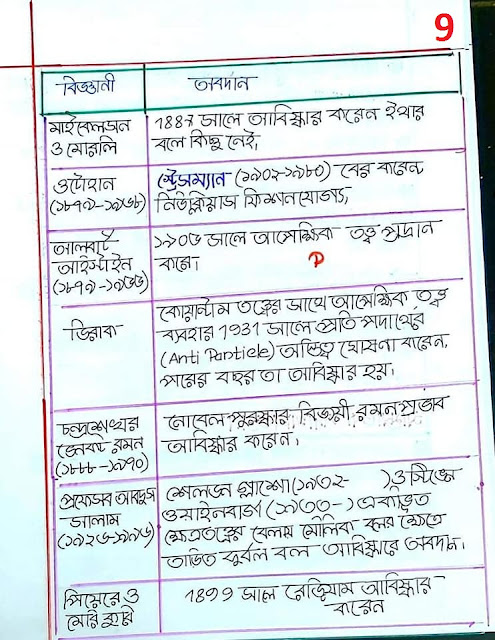 9
বিজ্ঞানী
অবদান
মাইকেলসন
ও মোরলি
1887 সালে আবিস্কার করেন ইথার
বলে কিছু নেই,
ওটোহান
(১৮৭৯-১৯৬৮)
স্ট্রেসম্যান (১৯০২-১৯৮০) বের করেন,
নিউক্লিয়াস ফিশনযোগ্য,
আলবার্ট
আইস্টাইন
(১৮৭৯-১৯৫৫)
১৯০৫ সালে আপেক্ষিক তত্ত্ব প্রদান
করে।
P
ডিরাক
কোয়ান্টাম তত্ত্বের সাথে আপেক্ষিক তত্ত্ব
ব্যবহার 1931 সালে প্রতি পদার্থের
(Anti Particle) অস্তিত্ব ঘোষনা করেন,
পরের বছর তা আবিস্কার হয়।
চন্দ্রশেখর
ভেঙ্কট রমন
(১৮৮৮-১৯৭০)
নোবেল পুরস্কার বিজয়ী রমন প্রভাব
আবিস্কার করেন।
প্রফেসর আবদুস
সালাম
(১৯২৬-১৯৯৬)
শেলডন গ্লাশো (১৯৩২- ) ও স্টিভেন
ওয়াইনবার্গ (১৯৩৩- ) একীভূত
ক্ষেত্রতত্ত্বের বেলায় মৌলিক বলের ক্ষেত্রে
তাড়িত দুর্বল বল আবিস্কারে অবদান।
পিয়েরে ও
মেরি কুরি
1899 সালে রেডিয়াম আবিস্কার
করেন